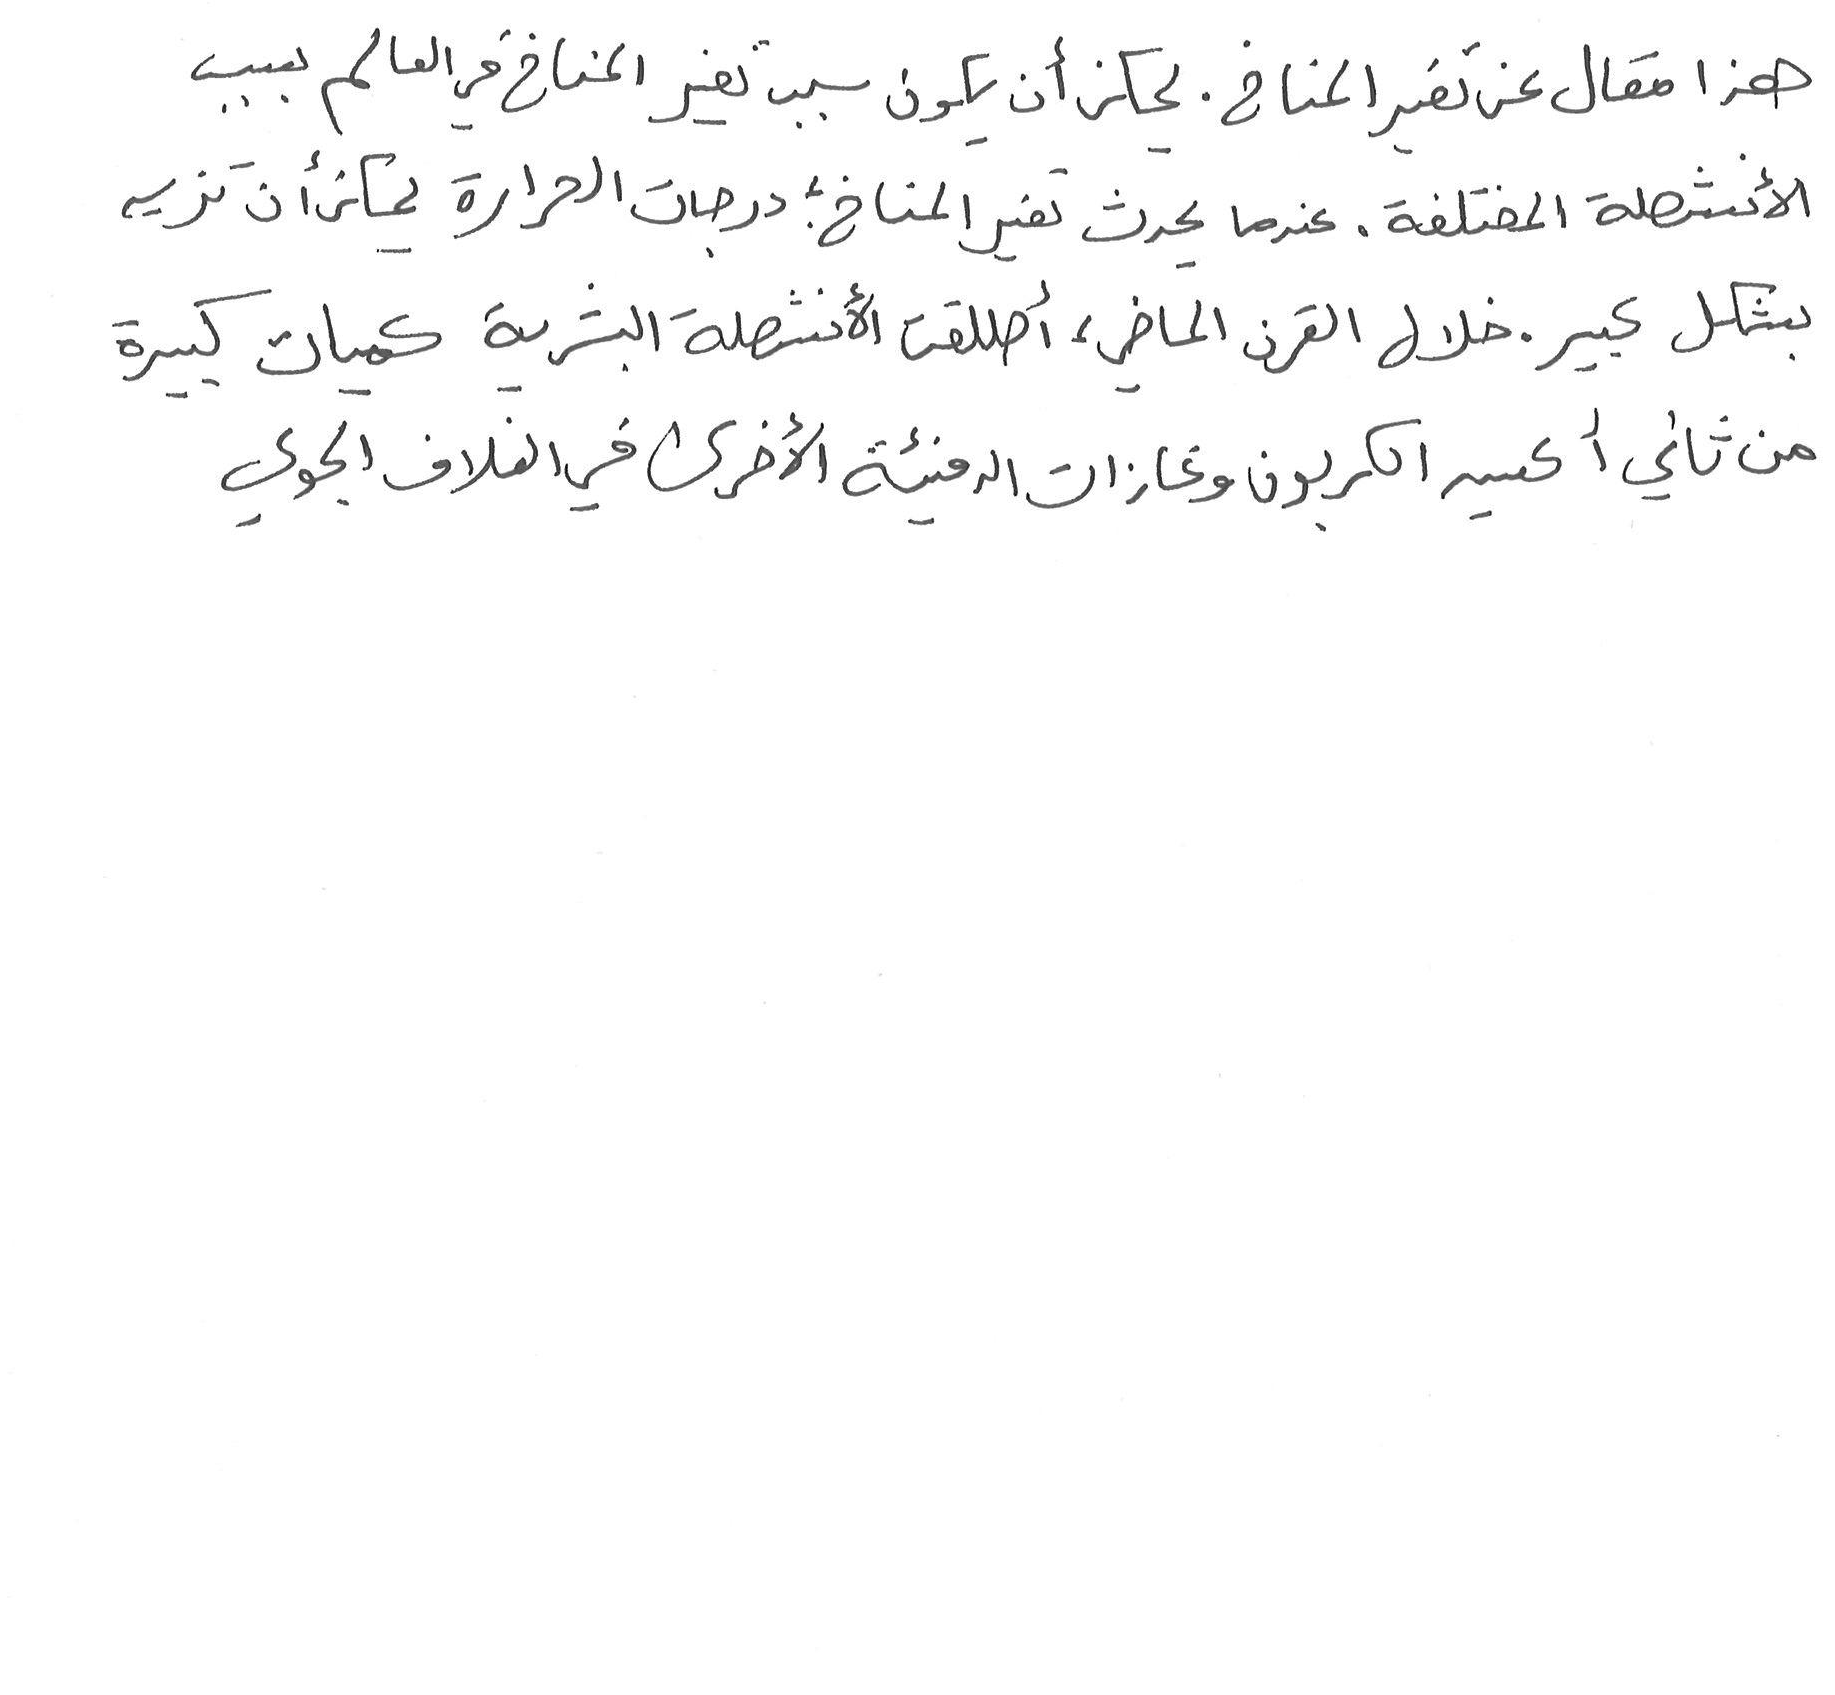 هذا مقال عن تغير المناخ. يمكن أن يكون سبب تغير المناخ في العالم بسبب
الأنشطة المختلفة. عندما يحدث تغير المناخ؛ درجات الحرارة يمكن أن تزيد
بشكل كبير. خلال القرن الماضي، أطلقت الأنشطة البشرية كميات كبيرة
من ثاني أكسيد الكربون وغازات الدفيئة الأخرى في الغلاف الجوي